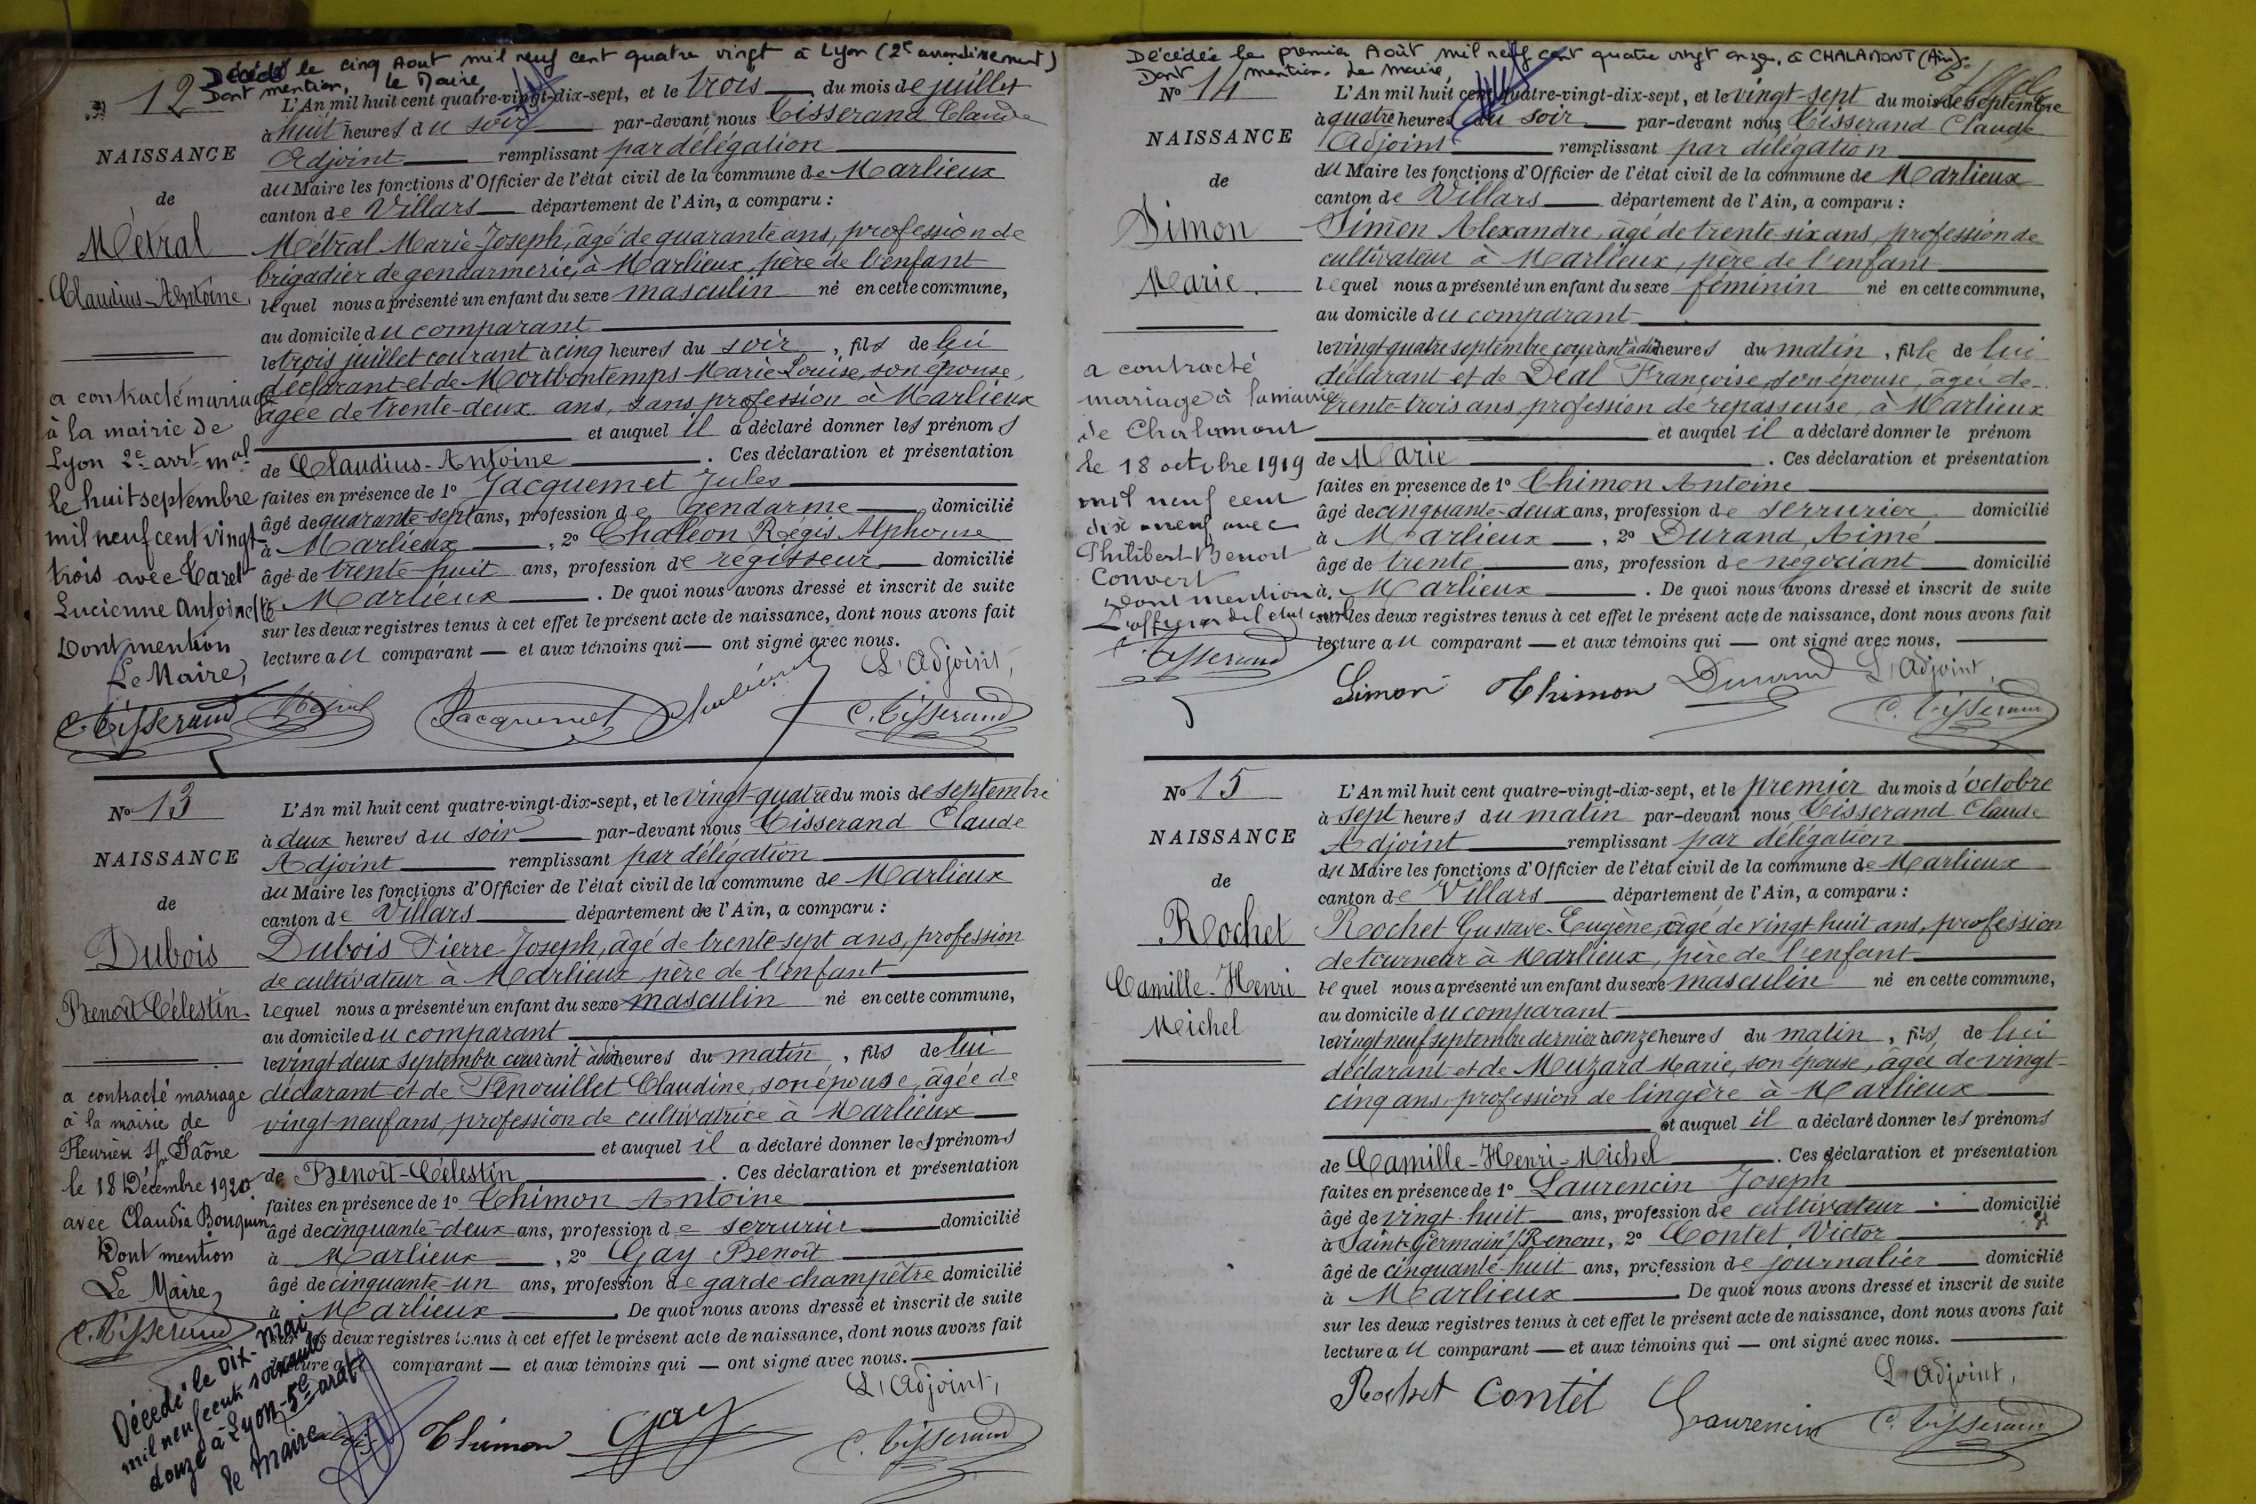 Décédé le cinq Aout mil neuf cent quatre vingt à Lyon (2e arrondissement)
Dont mention, Le Maire
12
NAISSANCE
de
Métral
Claudius-Antoine
a contracté mariage
à la mairie de
Lyon 2e arrt mal
le huit septembre
mil neuf cent vingt-
trois avec Caret
Lucienne Antoinette
Dont mention
Le Maire,
C. Tisserand
L'An mil huit cent quatre-vingt-dix-sept, et le trois du mois de juillet
à huit heures du soir par-devant nous Tisserand Claude
Adjoint remplissant par délégation
du Maire les fonctions d'Officier de l'état civil de la commune de Marlieux
canton de Villars département de l'Ain, a comparu :
Métral Marie-Joseph, âgé de quarante ans, profession de
brigadier de gendarmerie, à Marlieux, père de l'enfant
lequel nous a présenté un enfant du sexe masculin né en cette commune,
au domicile du comparant
le trois juillet courant à cinq heures du soir, fils de lui
déclarant et de Mortbontemps Marie Louise, son épouse,
âgée de trente-deux ans, sans profession à Marlieux
et auquel il a déclaré donner les prénoms
de Claudius-Antoine. Ces déclaration et présentation
faites en présence de 1º Jacquemet Jules
âgé de quarante-sept ans, profession de Gendarme domicilié
à Marlieux, 2º Chaléon Régis Alphonse
âgé de trente-huit ans, profession de régisseur domicilié
à Marlieux. De quoi nous avons dressé et inscrit de suite
sur les deux registres tenus à cet effet le présent acte de naissance, dont nous avons fait
lecture au comparant — et aux témoins qui — ont signé avec nous.
L'Adjoint,
Métral Jacquemet C. Tisserand
Nº 13
NAISSANCE
de
Dubois
Benoît Célestin.
a contracté mariage
à la mairie de
Fleurieu s/ Saône
le 18 Décembre 1920
avec Claudia Bouquin
Dont mention
Le Maire,
C. Tisserand
Décédé le DIX-MAI
mil neuf cent soixante
douze à Lyon-5e arrdt
le Maire
L'An mil huit cent quatre-vingt-dix-sept, et le vingt-quatre du mois de septembre
à deux heures du soir par-devant nous Tisserand Claude
Adjoint remplissant par délégation
du Maire les fonctions d'Officier de l'état civil de la commune de Marlieux
canton de Villars département de l'Ain, a comparu :
Dubois Pierre-Joseph, âgé de trente-sept ans, profession
de cultivateur à Marlieux père de l'enfant
lequel nous a présenté un enfant du sexe masculin né en cette commune,
au domicile du comparant
le vingt deux septembre courant à dix heures du matin, fils de lui
déclarant et de Fenouillet Claudine, son épouse, âgée de
vingt-neuf ans, profession de cultivatrice à Marlieux
et auquel il a déclaré donner les prénoms
de Benoît-Célestin. Ces déclaration et présentation
faites en présence de 1º Thimon Antoine
âgé de cinquante-deux ans, profession de serrurier domicilié
à Marlieux, 2º Gay Benoît
âgé de cinquante-un ans, profession de garde champêtre domicilié
à Marlieux. De quoi nous avons dressé et inscrit de suite
sur les deux registres tenus à cet effet le présent acte de naissance, dont nous avons fait
lecture a comparant — et aux témoins qui — ont signé avec nous.
L'Adjoint,
Thimon Gay C. Tisserand
Décédée le premier Août mil neuf cent quatre vingt onze, à CHALAMONT (Ain).
Dont mention. Le Maire,
Nº 14
NAISSANCE
de
Simon
Marie
a contracté
mariage à la mairie
de Chalamont
le 18 octobre 1919
mil neuf cent
dix neuf avec
Philibert-Benoit
Convert
Dont mention
L'officier de l'état civil
C. Tisserand
L'An mil huit cent quatre-vingt-dix-sept, et le vingt-sept du mois de septembre
à quatre heures du soir par-devant nous Tisserand Claude
Adjoint remplissant par délégation
du Maire les fonctions d'Officier de l'état civil de la commune de Marlieux
canton de Villars département de l'Ain, a comparu :
Simon Alexandre, âgé de trente-six ans, profession de
cultivateur à Marlieux, père de l'enfant
lequel nous a présenté un enfant du sexe féminin né en cette commune,
au domicile du comparant
le vingt-quatre septembre courant à dix heures du matin, fille de lui
déclarant et de Déal Françoise, son épouse, âgée de
trente-trois ans profession de repasseuse, à Marlieux
et auquel il a déclaré donner le prénom
de Marie. Ces déclaration et présentation
faites en présence de 1º Thimon Antoine
âgé de cinquante-deux ans, profession de serrurier domicilié
à Marlieux, 2º Durand Aimé
âgé de trente ans, profession de négociant domicilié
à Marlieux. De quoi nous avons dressé et inscrit de suite
sur les deux registres tenus à cet effet le présent acte de naissance, dont nous avons fait
lecture au comparant — et aux témoins qui — ont signé avec nous.
Simon Thimon Durand L'Adjoint,
C. Tisserand
Nº 15
NAISSANCE
de
Rochet
Camille-Henri
Michel
L'An mil huit cent quatre-vingt-dix-sept, et le premier du mois d'octobre
à sept heures du matin par-devant nous Tisserand Claude
Adjoint remplissant par délégation
du Maire les fonctions d'Officier de l'état civil de la commune de Marlieux
canton de Villars département de l'Ain, a comparu :
Rochet Gustave-Eugène, âgé de vingt-huit ans, profession
de tourneur à Marlieux, père de l'enfant
lequel nous a présenté un enfant du sexe masculin né en cette commune,
au domicile du comparant
le vingt neuf septembre dernier à onze heures du matin, fils de lui
déclarant et de Muzard Marie, son épouse, âgée de vingt-
cinq ans, profession de lingère à Marlieux
et auquel il a déclaré donner les prénoms
de Camille-Henri-Michel. Ces déclaration et présentation
faites en présence de 1º Laurencin Joseph
âgé de vingt-huit ans, profession de cultivateur domicilié
à Saint-Germain s/ Renom, 2º Contet Victor
âgé de cinquante-huit ans, profession de journalier domicilié
à Marlieux. De quoi nous avons dressé et inscrit de suite
sur les deux registres tenus à cet effet le présent acte de naissance, dont nous avons fait
lecture au comparant — et aux témoins qui — ont signé avec nous.
L'Adjoint,
Rochet Contet Laurencin C. Tisserand